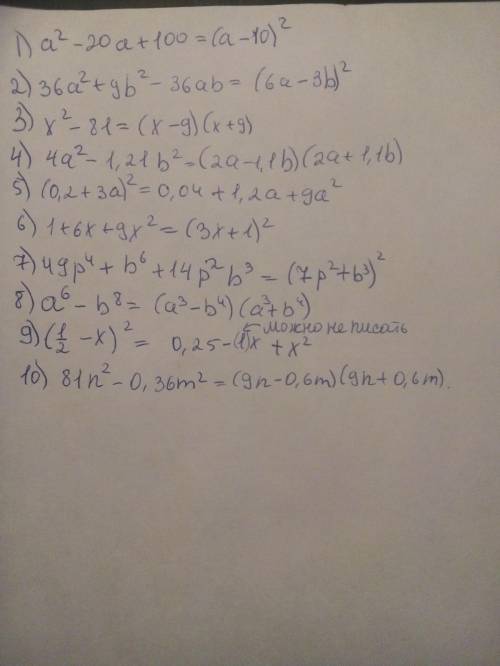 1) a² - 20a + 100 = (a - 10)²
2) 36a² + 9b² - 36ab = (6a - 3b)²
3) x² - 81 = (x - 9)(x + 9)
4) 4a² - 1,21b² = (2a - 1,1b)(2a + 1,1b)
5) (0,2 + 3a)² = 0,04 + 1,2a + 9a²
6) 1 + 6x + 9x² = (3x + 1)²
7) 49p⁴ + b⁶ + 14p²b³ = (7p² + b³)²
8) a⁶ - b⁸ = (a³ - b⁴)(a³ + b⁴)
9) (1/2 - x)² = 0,25 - (1)x + x² ← можно не писать
10) 81n² - 0,36m² = (9n - 0,6m)(9n + 0,6m).